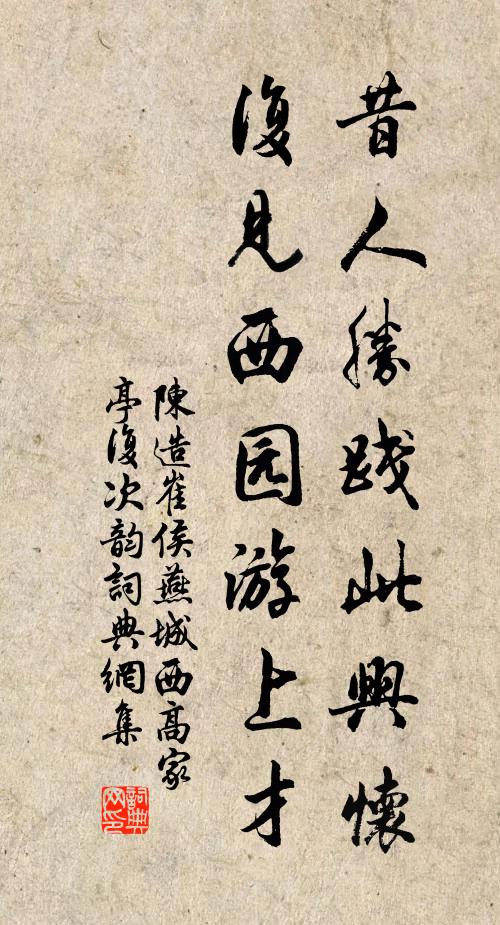 昔人勝践此興懷
復見西园游上才
陳造崔侯燕城西高家
亭復次韵詞典網集
詞典网印